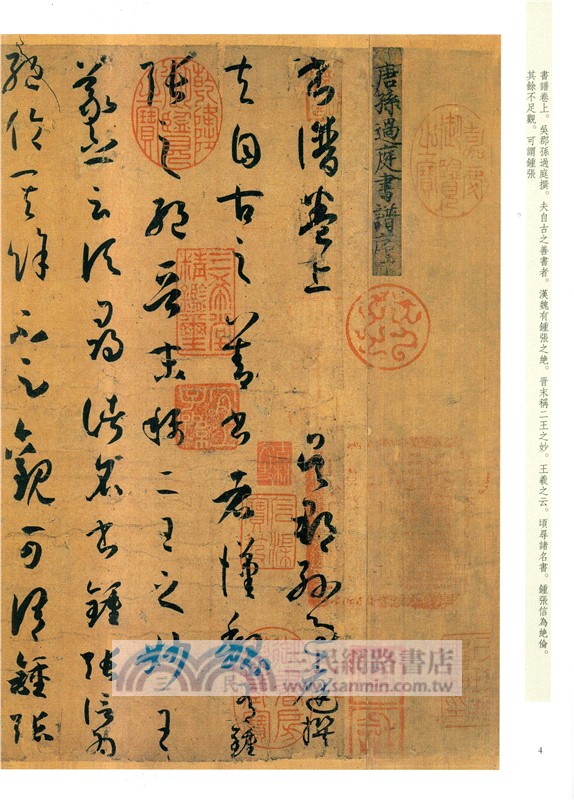 書譜卷上。吳郡孫過庭撰。夫自古之善書者。漢魏有鍾張之絕。晉末稱二王之妙。王羲之云。頃尋諸名書。鍾張信為絕倫。
其餘不足觀。可謂鍾張
4
嘉慶御覽之寶
唐孫過庭書譜序
書譜卷上 吳郡孫過庭撰
夫自古之善書者漢魏有鍾
張之絕晉末稱二王之妙王
羲之云頃尋諸名書鍾張信為
絕倫其餘不足觀可謂鍾張
乾隆御覽之寶
三希堂精鑑璽
宜子孫
三民網路書店
www.sanmin.com.tw